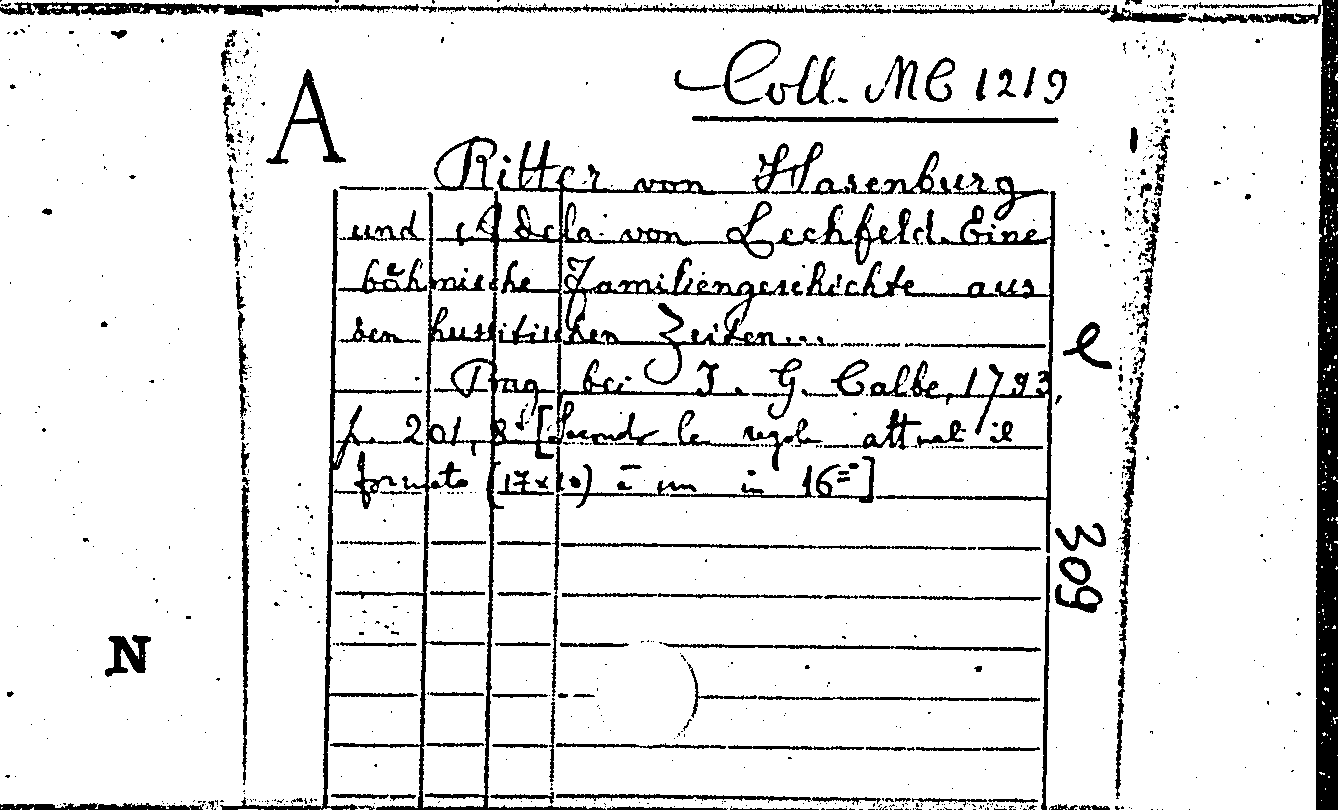 A
Coll. MC 1219
Ritter von Hasenburg
und Adela von Lechfeld. Eine
böhmische Familiengeschichte aus
den hussitischen Zeiten...
Prag, bei J. G. Calbe, 1793,
p. 201, 8° [Secondo le regole attuali il
formato (17x10) è un in 16°]
e
309
N